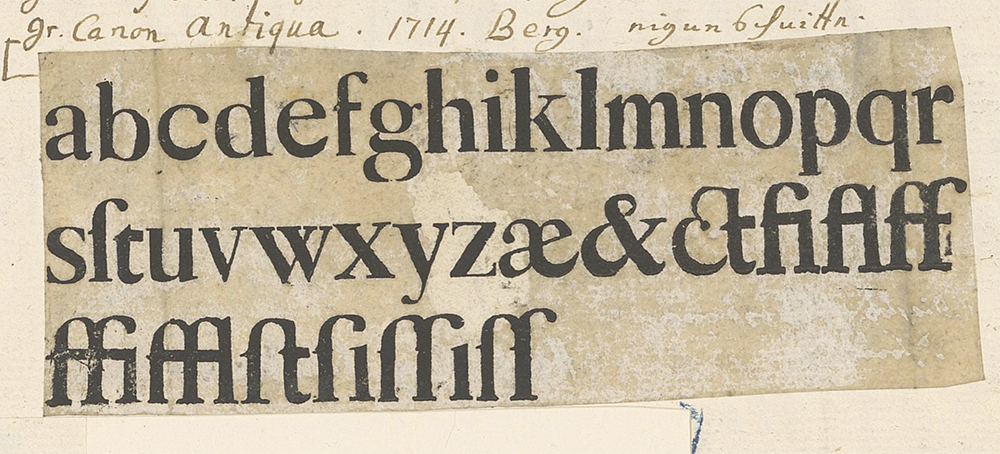 Gr. Canon Antiqua. 1714. Berg.
abcdefghiklmnopqr
sſtuvwxyzæ&ctfiflff
ffifflſtſiſſiſſ